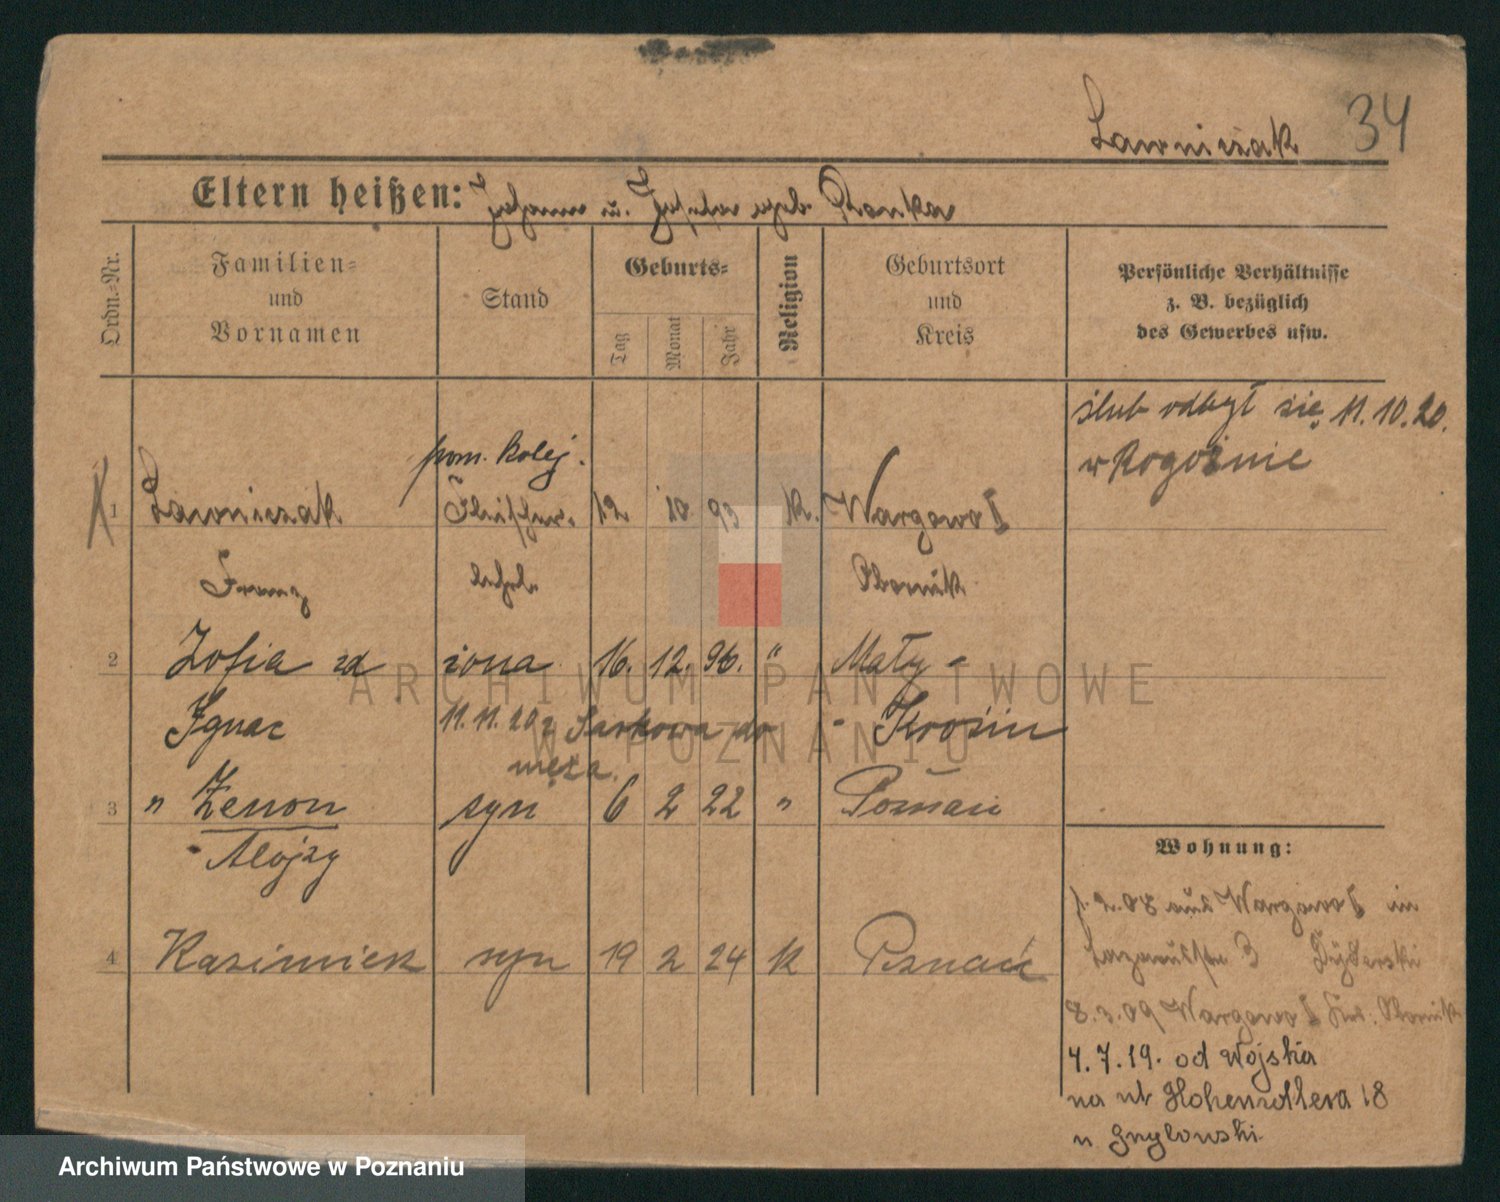 34
Ławniczak
Eltern heißen: Johann u. Josepha geb. Ponka
Ordn.-Nr.
Familien-
und
Vornamen
Stand
Geburts-
Tag
Monat
Jahr
Religion
Geburtsort
und
Kreis
Persönliche Verhältnisse
z. B. bezüglich
des Gewerbes usw.
ślub odbył się 11.10.20.
w Rogoźnie
pom. kolej.
1 Ławniczak 12 10 93 k. Wargowo I
Franz lehrl. Obornik
2 Zofia zd żona 16. 12. 96. " Mały -
Ignac 11.11.20 z Sarkowa do - Krosin
męża.
3 " Zenon syn 6 2 22 " Poznań
Alojzy
4 Kazimierz syn 19 2 24 k Poznań
Wohnung:
1.2.08 aus Wargowo I in
Lazarusstr 3
8.3.09 Wargowo I Krs. Obornik
4.7.19. od Wojska
na ul Hohenzollera 18
u Gnylowski
ARCHIWUM PAŃSTWOWE
W POZNANIU
Archiwum Państwowe w Poznaniu